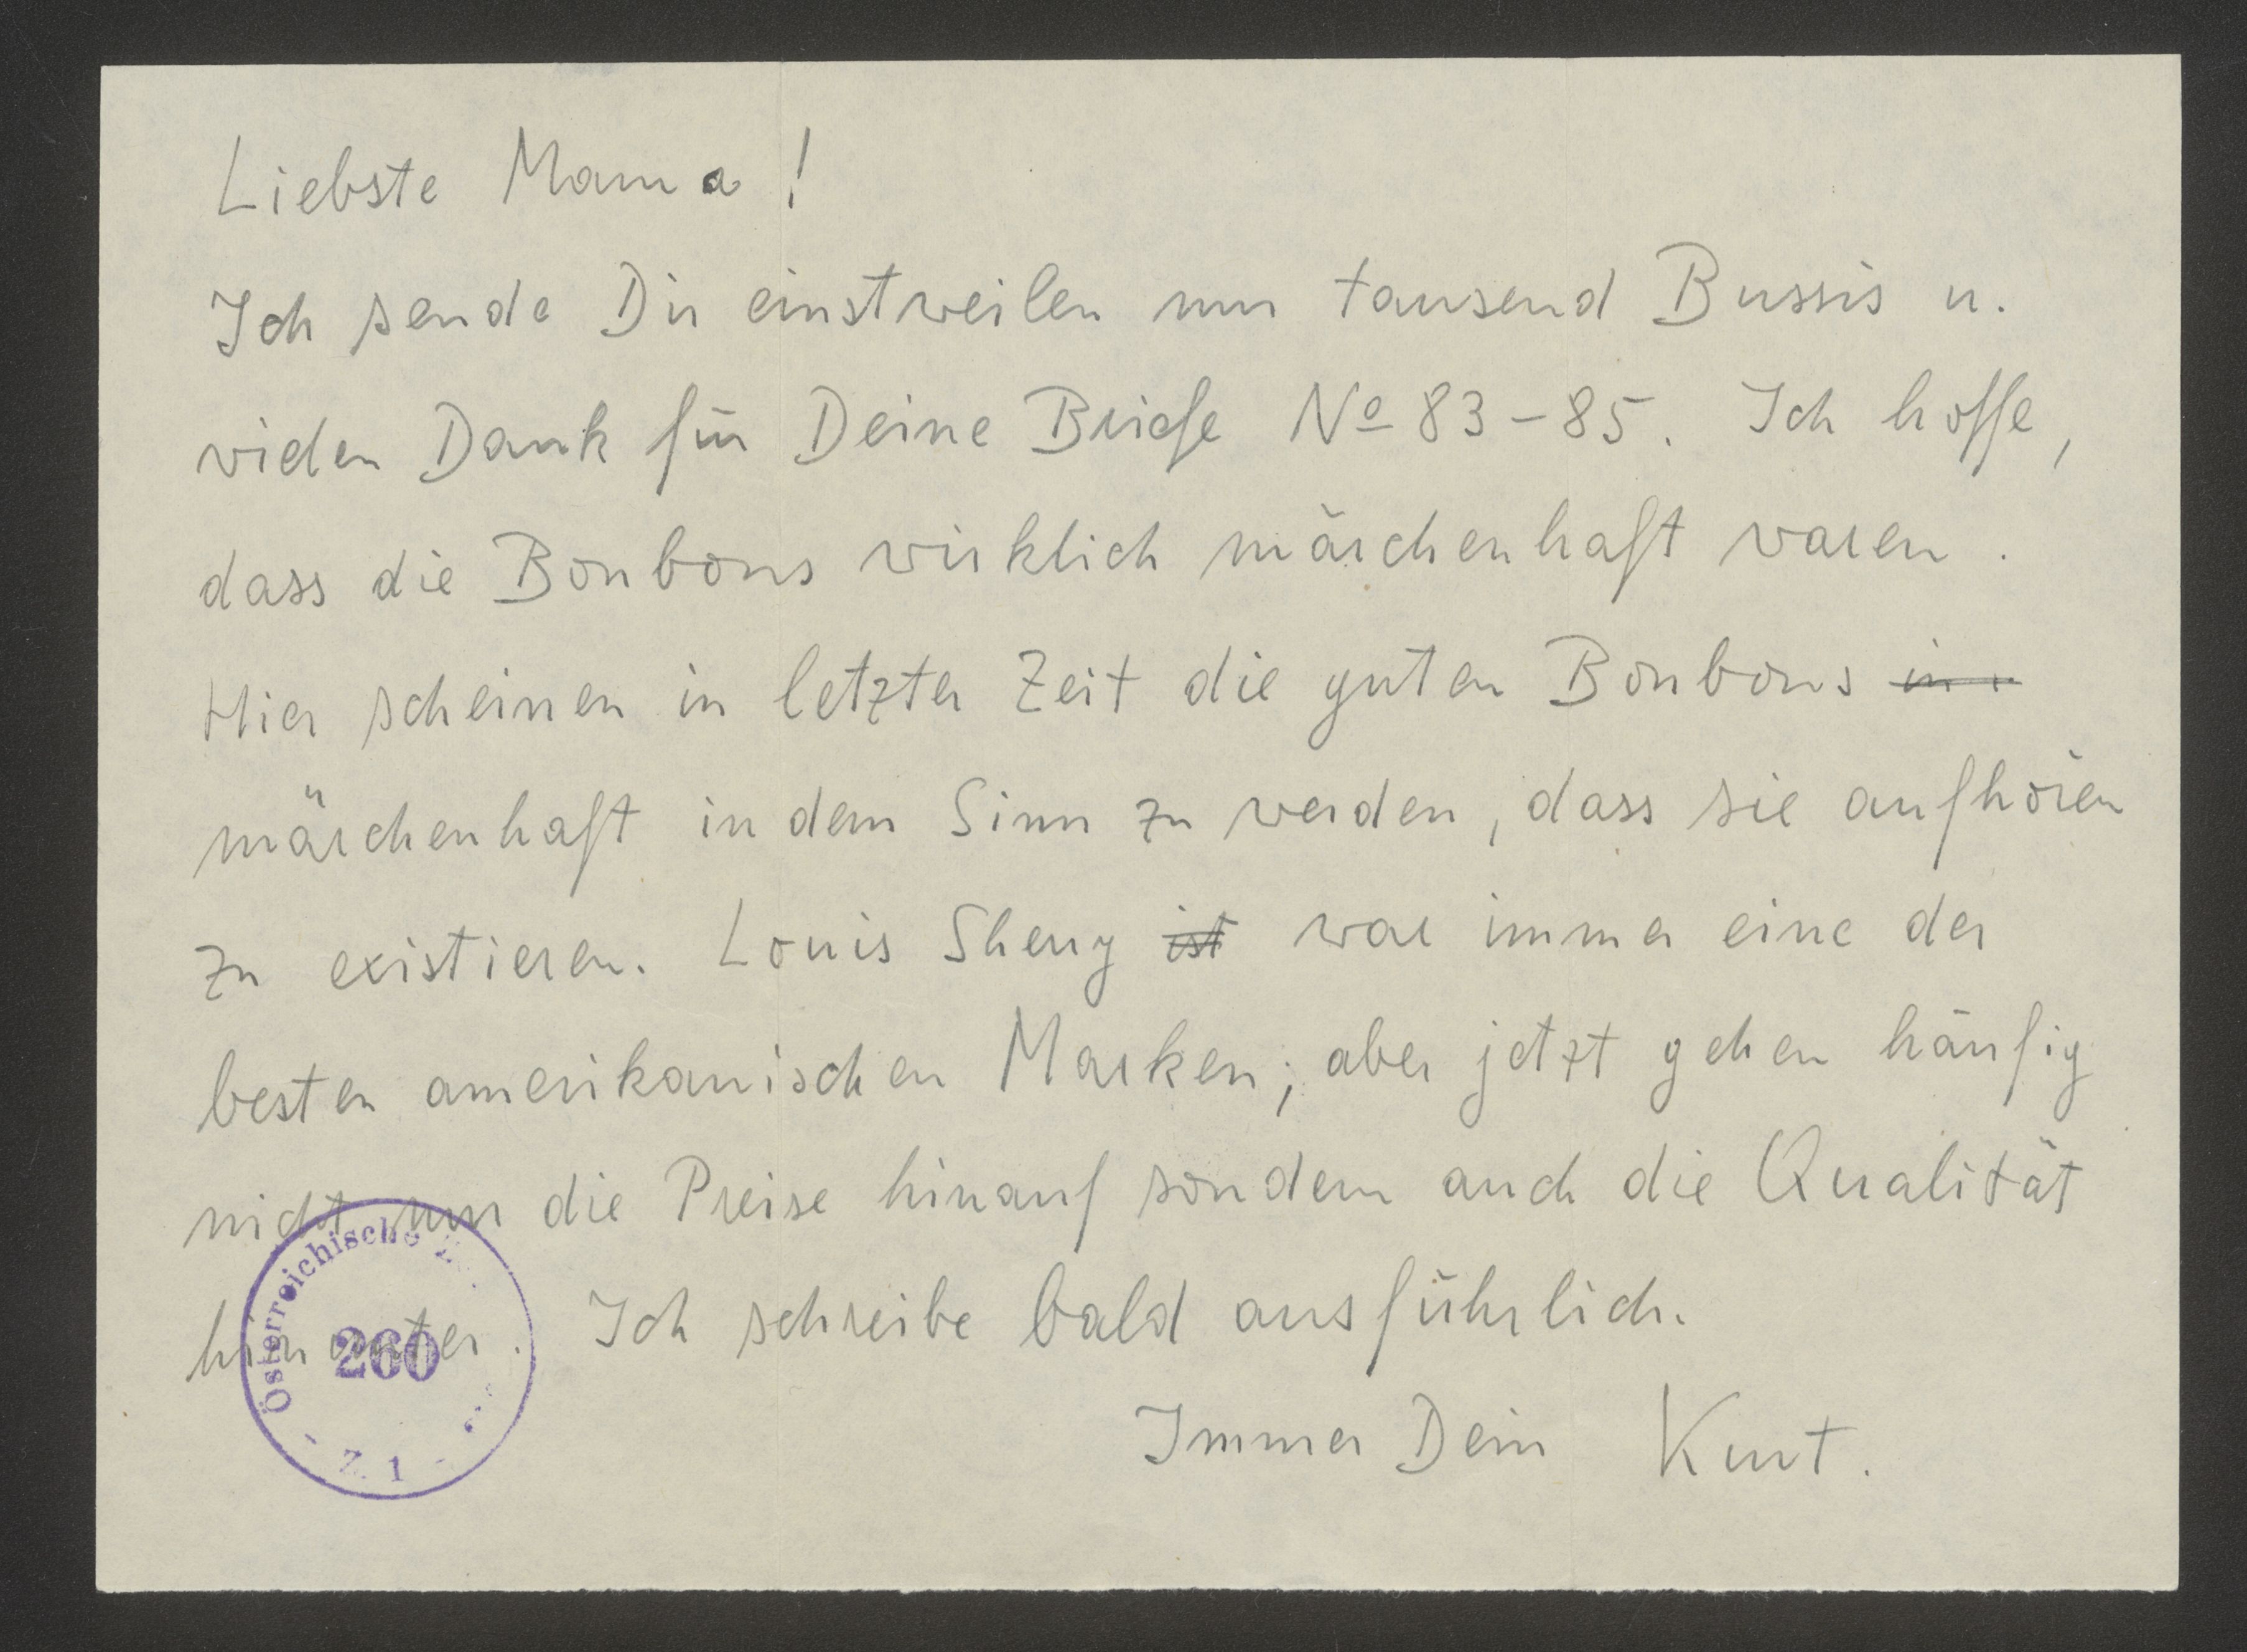 Liebste Mama!
Ich sende Dir einstweilen nur tausend Bussis u.
vielen Dank für Deine Briefe Nº 83–85. Ich hoffe,
dass die Bonbons wirklich märchenhaft waren.
Hier scheinen in letzter Zeit die guten Bonbons
märchenhaft in dem Sinn zu werden, dass sie aufhören
zu existieren. Louis Sherry ist war immer eine der
besten amerikanischen Marken; aber jetzt gehen häufig
nicht nur die Preise hinauf sondern auch die Qualität
hinunter. Ich schreibe bald ausführlich.
Immer Dein Kurt.
Österreichische
260
Z 1